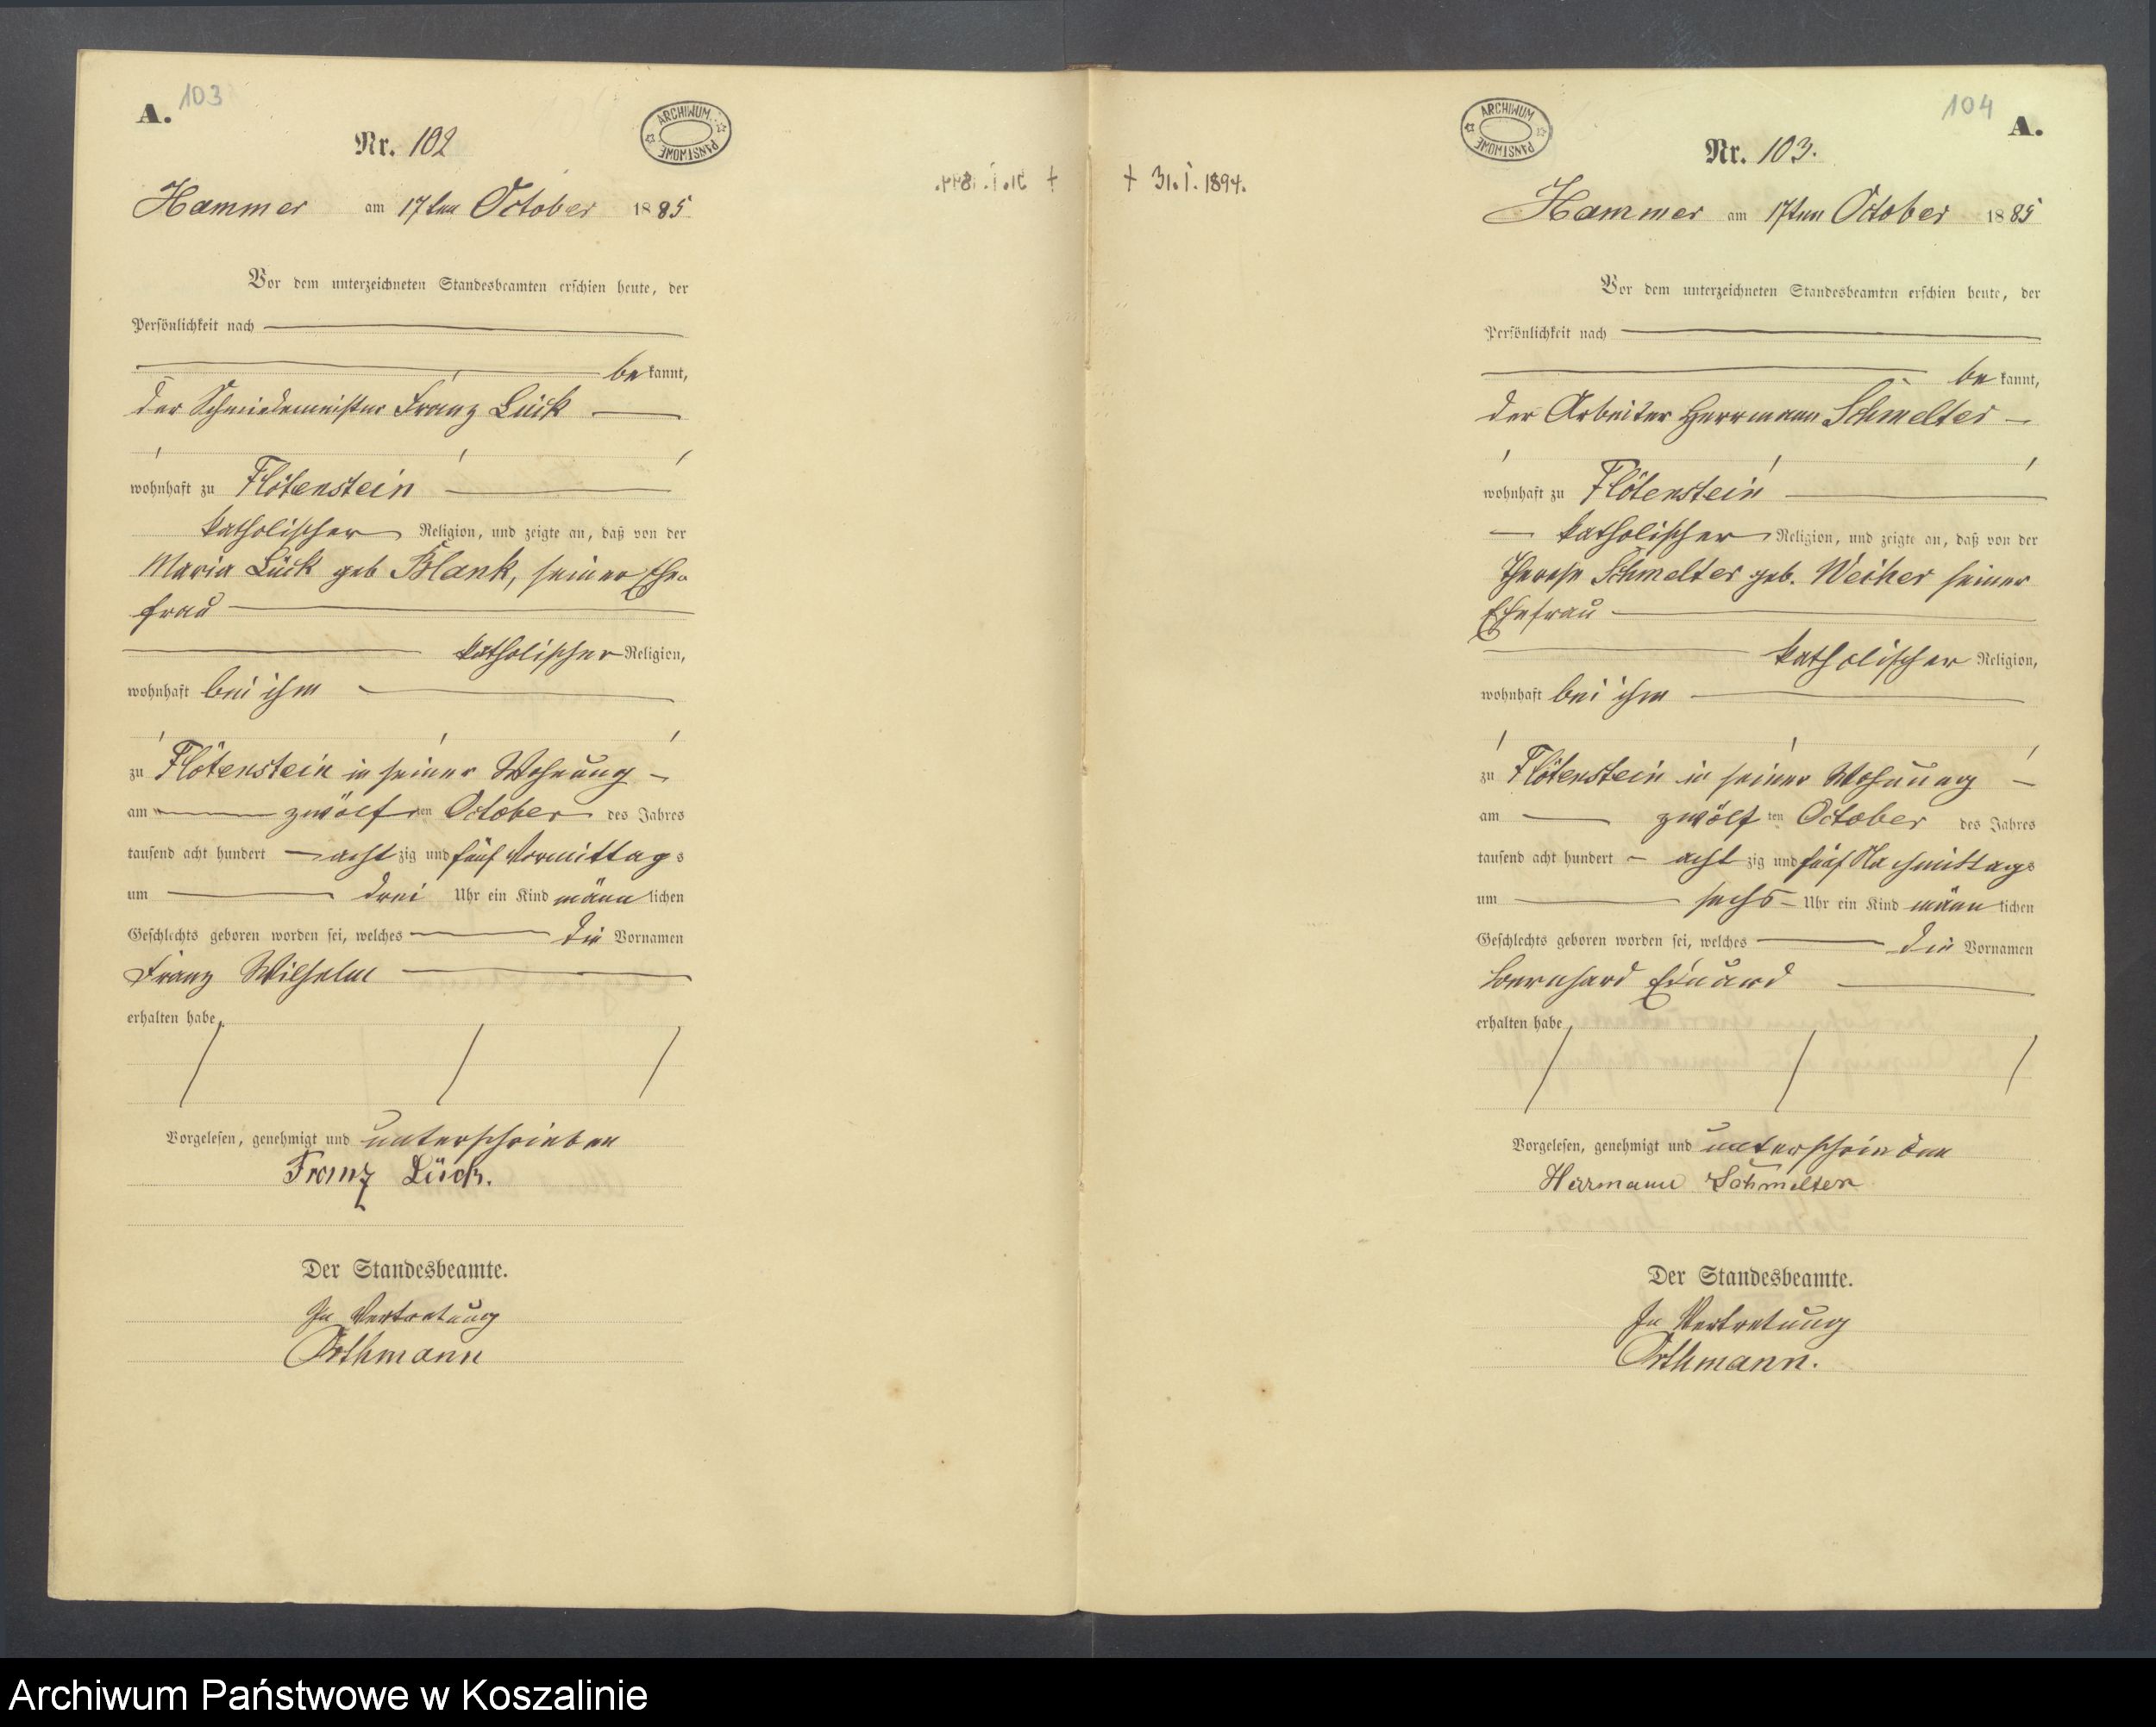 A.
103
Nr. 102
ARCHIWUM PAŃSTWOWE
Hammer am 17ten October 1885
Vor dem unterzeichneten Standesbeamten erschien heute, der
Persönlichkeit nach
bekannt,
der Schmiedemeister Franz Lück
wohnhaft zu Flötenstein
katholischer Religion, und zeigte an, daß von der
Maria Lück geb Blank, seiner Ehe-
frau
katholischer Religion,
wohnhaft bei ihm
zu Flötenstein in seiner Wohnung
am zwölften October des Jahres
tausend acht hundert achtzig und fünf Vormittags
um drei Uhr ein Kind männlichen
Geschlechts geboren worden sei, welches die Vornamen
Franz Wilhelm
erhalten habe.
Vorgelesen, genehmigt und unterschrieben
Franz Lück.
Der Standesbeamte.
In Vertretung
Orthmann
† 31. I. 1894.
ARCHIWUM PAŃSTWOWE
104
A.
Nr. 103.
Hammer am 17ten October 1885
Vor dem unterzeichneten Standesbeamten erschien heute, der
Persönlichkeit nach
bekannt,
der Arbeiter Herrmann Schmelter
wohnhaft zu Flötenstein
katholischer Religion, und zeigte an, daß von der
Therese Schmelter geb. Weiher seiner
Ehefrau
katholischer Religion,
wohnhaft bei ihm
zu Flötenstein in seiner Wohnung
am zwölften October des Jahres
tausend acht hundert achtzig und fünf Nachmittags
um sechs Uhr ein Kind männlichen
Geschlechts geboren worden sei, welches die Vornamen
Bernhard Eduard
erhalten habe
Vorgelesen, genehmigt und unterschrieben
Herrmann Schmelter
Der Standesbeamte.
In Vertretung
Orthmann.
Archiwum Państwowe w Koszalinie